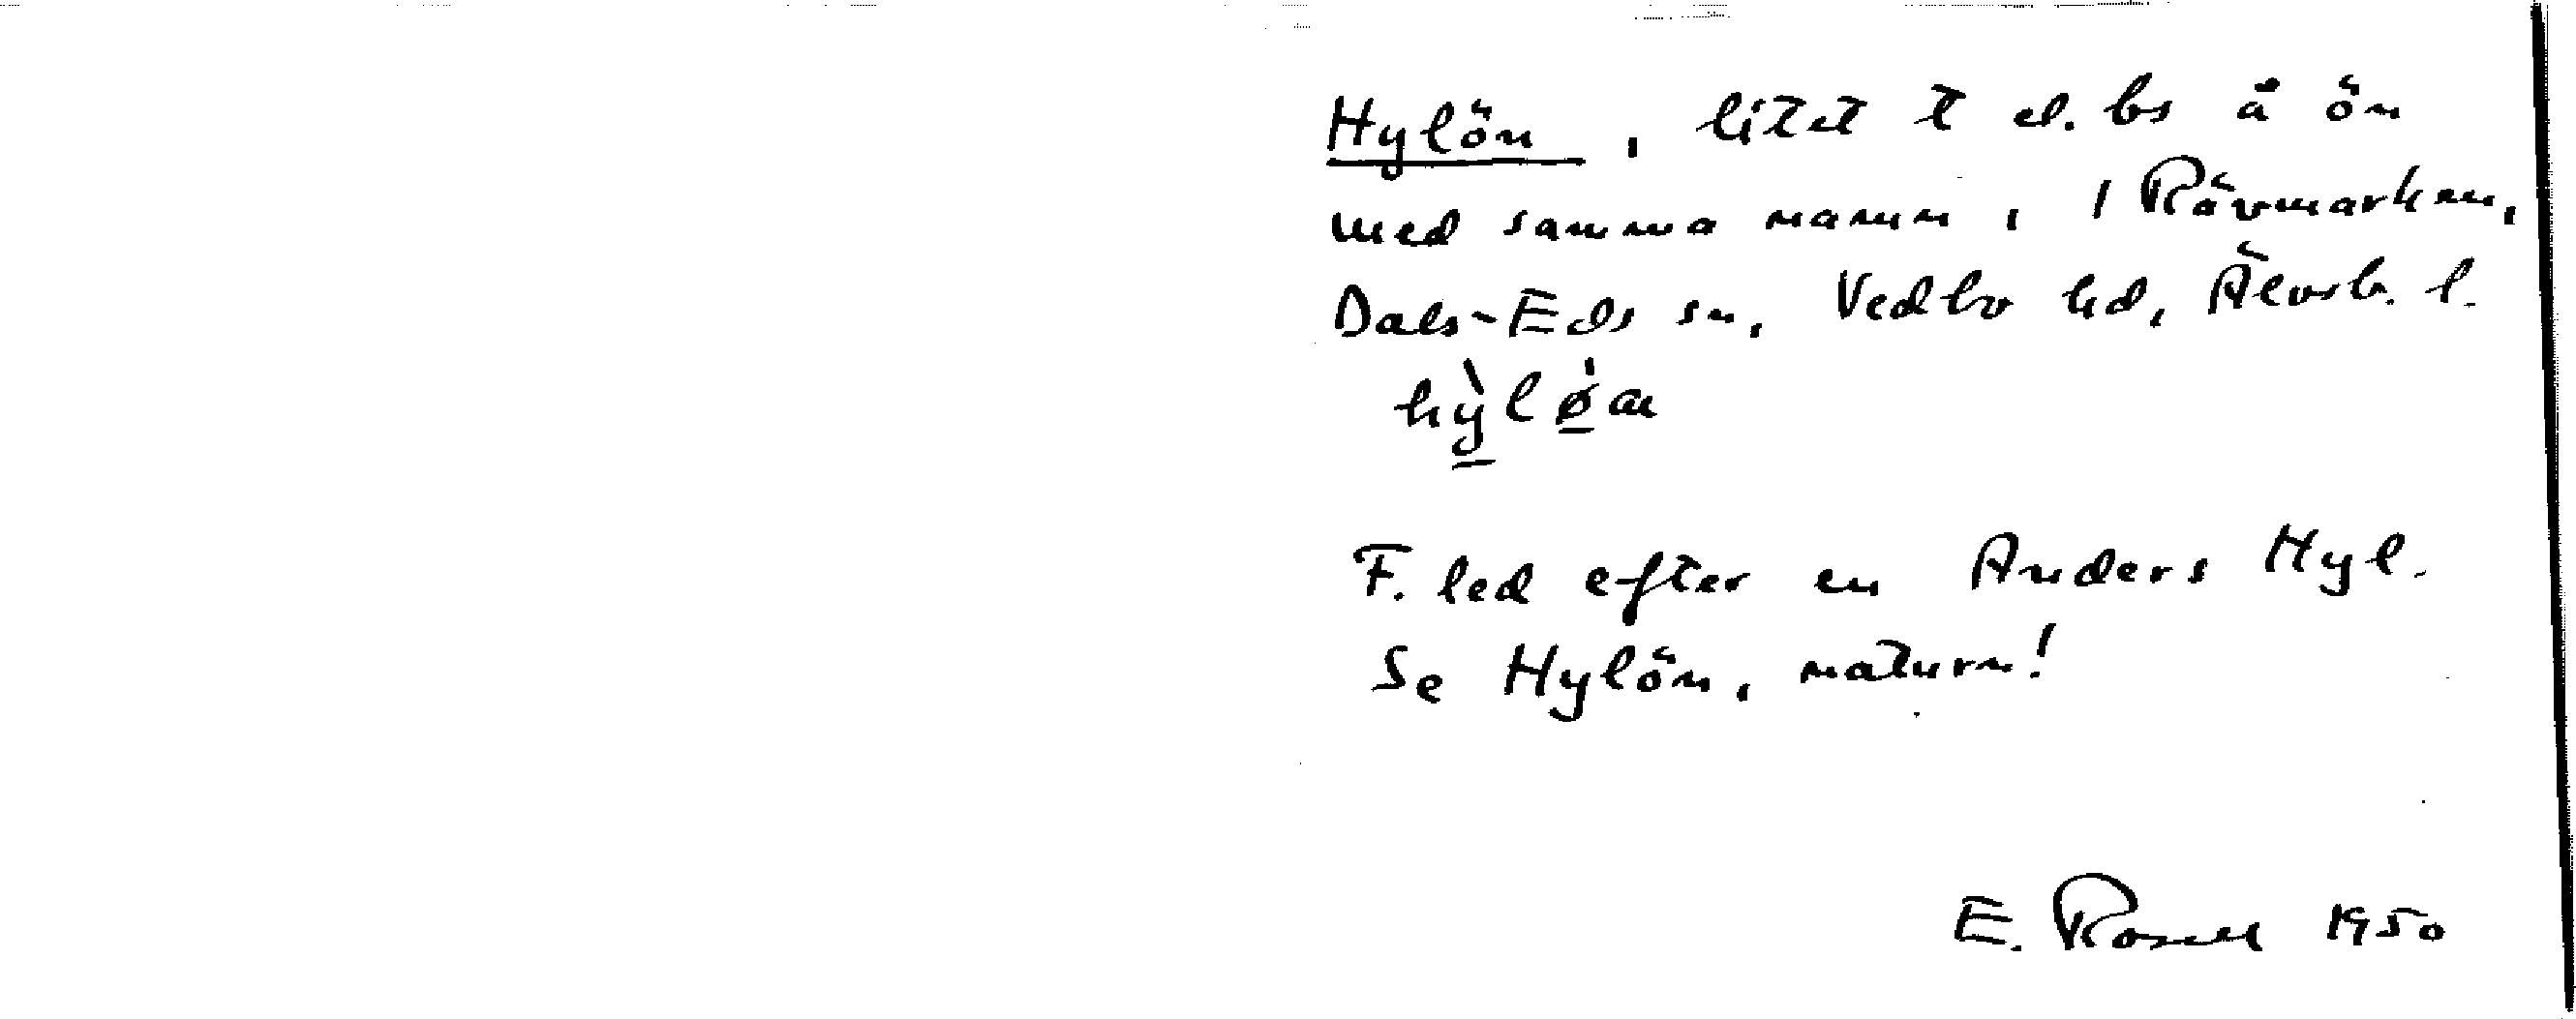 Hylön, litet t el. bs å ön
med samma namn, 1 Rävmarken,
Dals-Eds sn, Vedbo hd, Älvsb. l.
hỳlø̀n
F. led efter en Anders Hyl.
Se Hylön, naturn!
E. Rosell 1950